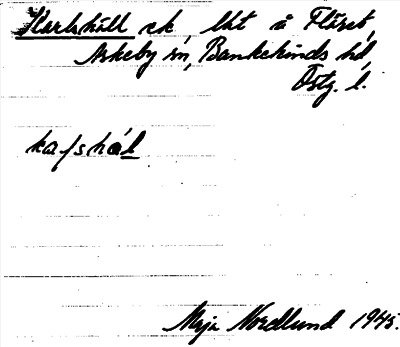 Karlshäll ck, lht å Flåret,
Askeby sn, Bankekinds hd
Östg. l.
kaʃshäl
Maja Nordlund 1945.